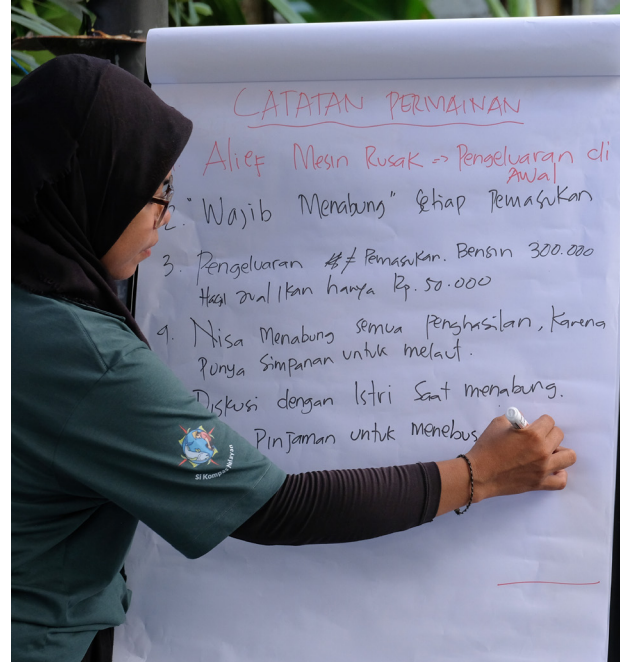 CATATAN PERMAINAN
Alief Mesin Rusak => Pengeluaran di
Awal
2. "Wajib Menabung" Setiap Pemasukan
3. Pengeluaran ≠ Pemasukan. Bensin 300.000
Hasil Jual Ikan hanya Rp. 50.000
4. Nisa Menabung semua Penghasilan, Karena
Punya Simpanan untuk melaut.
Diskusi dengan Istri Saat menabung.
Pinjaman untuk menebus
SI Kompas Nelayan